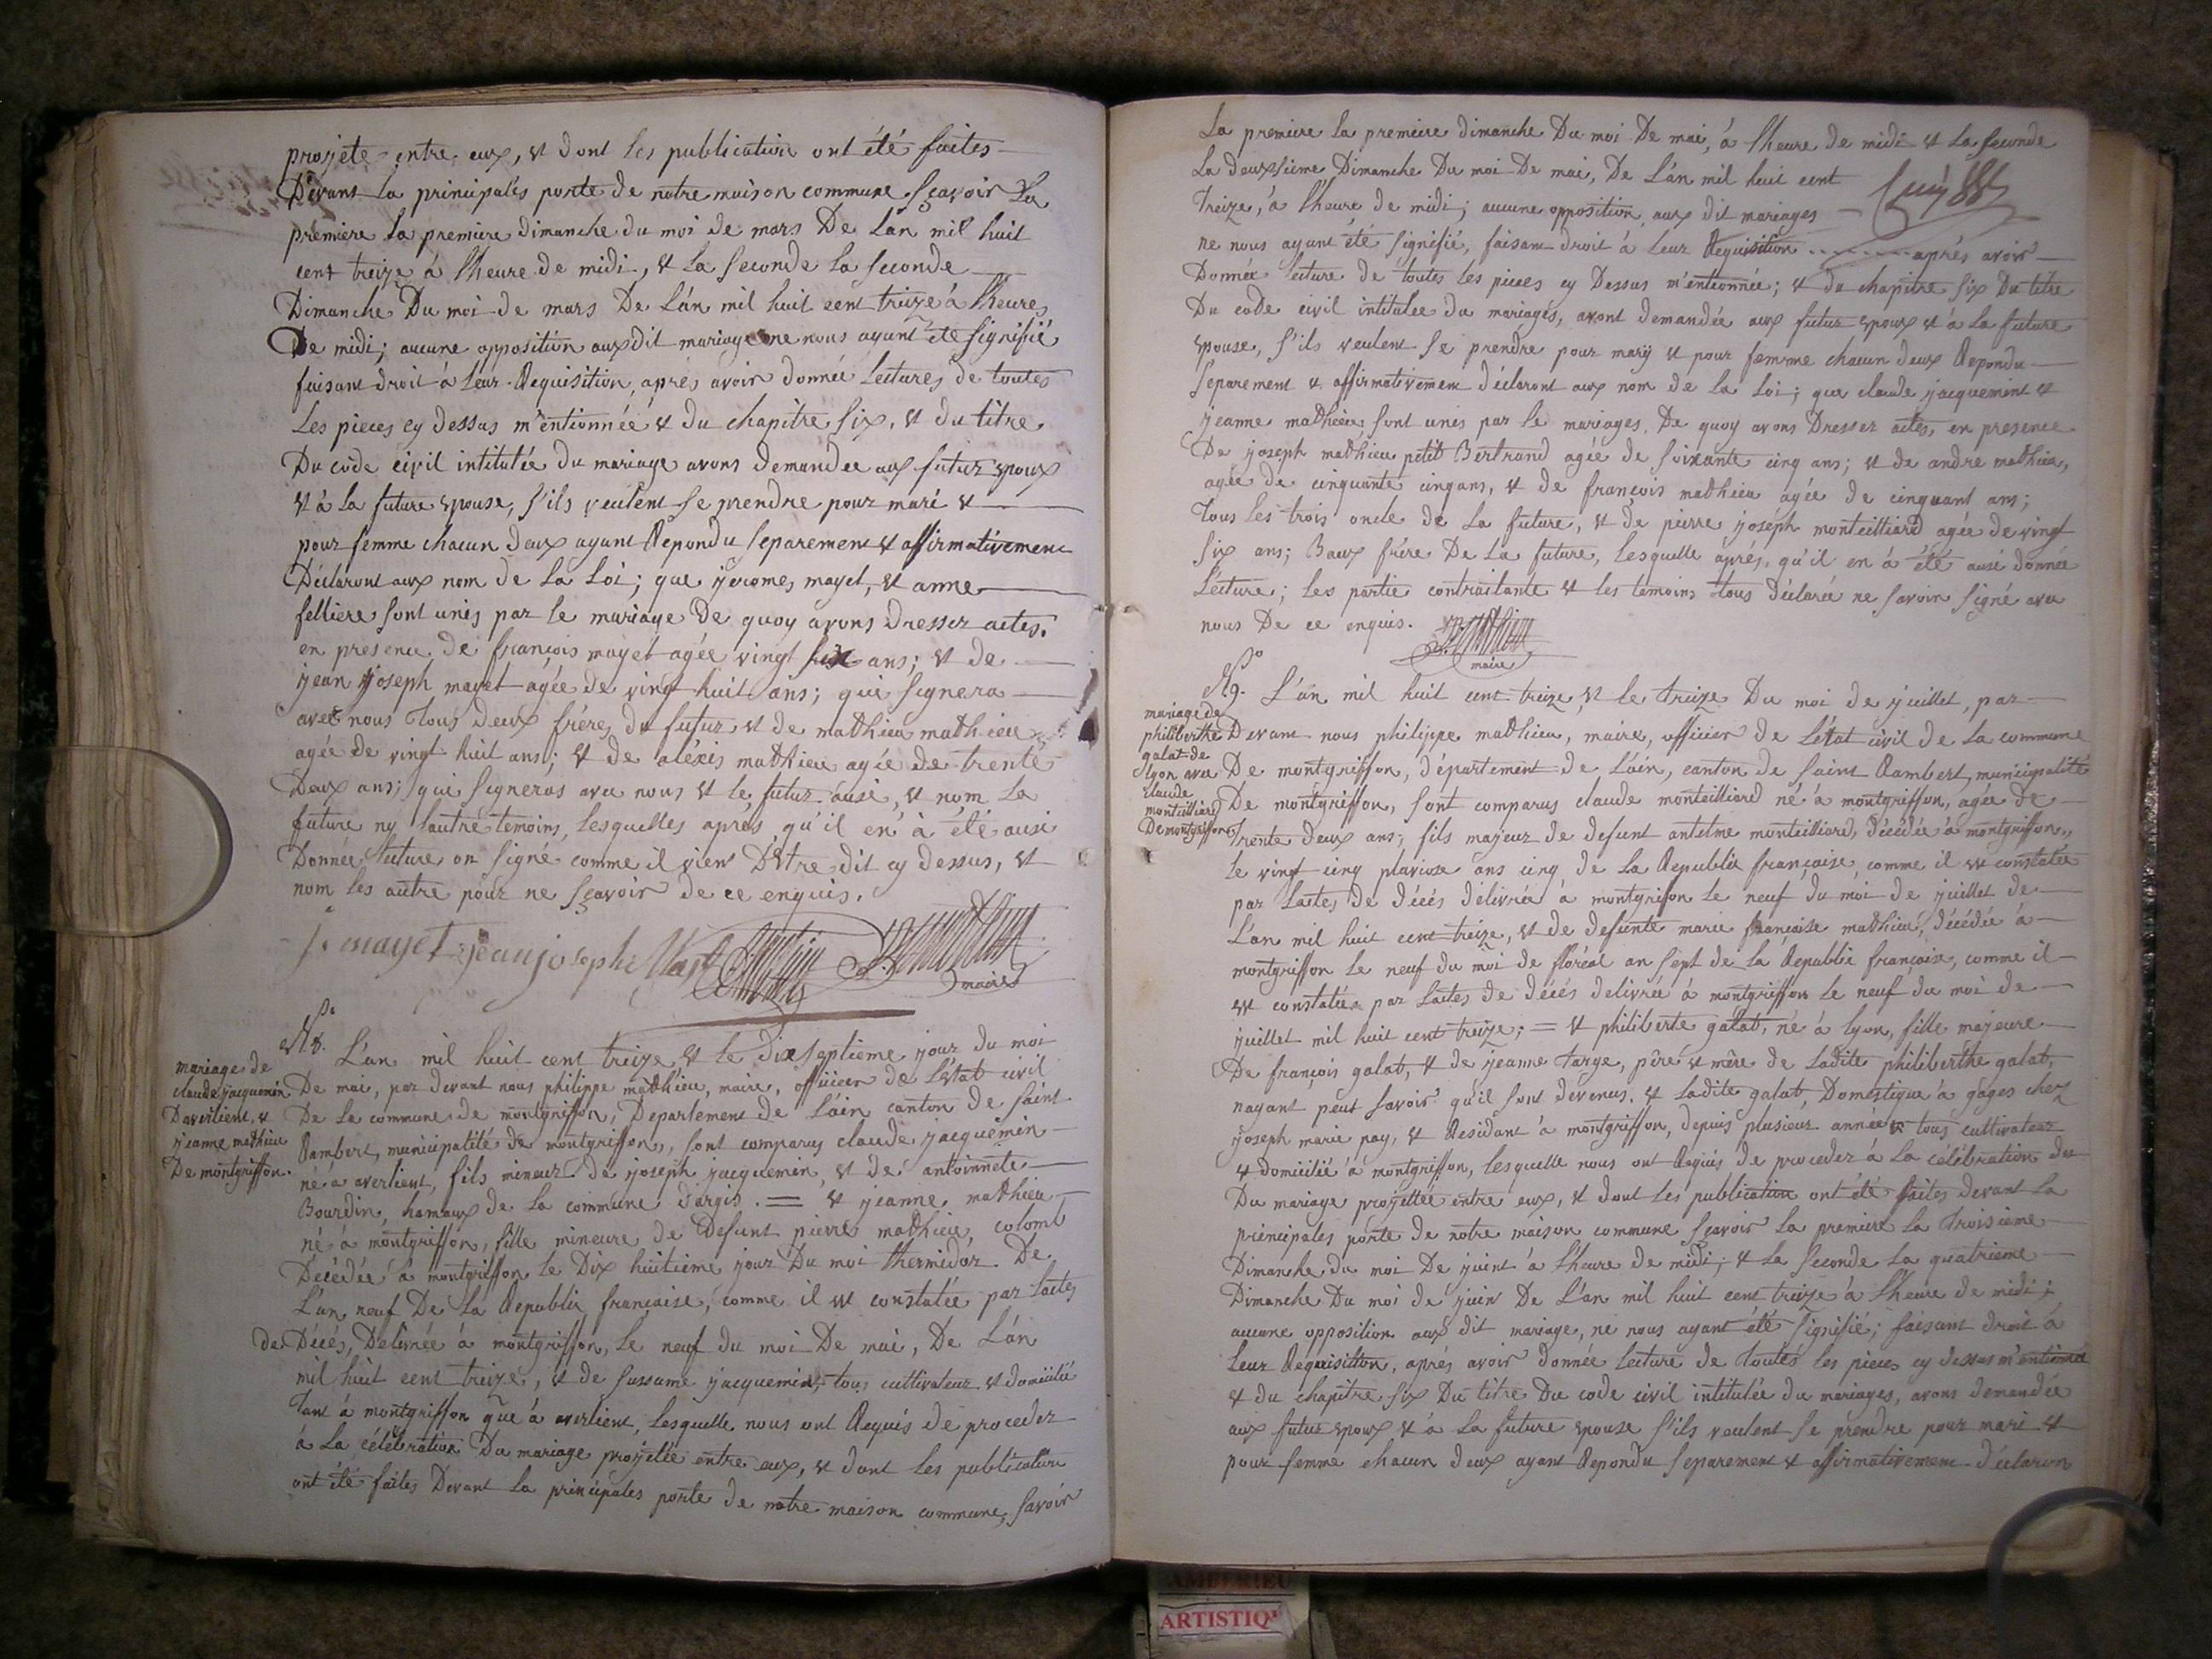 projeté entre eux, et dont les publication ont été faites
Devant la principales porte de notre maison commune sçavoir La
premiere la premiere dimanche du moi de mars De L'an mil huit
cent treize à l'heure de midi, et La seconde La seconde
Dimanche Du moi de mars De L'an mil huit cent treize à l'heure
De midi; aucune opposition aux dit mariage ne nous ayant été signifié
faisant droit à leur Requisition, aprés avoir donnée Lectures de toutes
Les pieces cy dessus m'entionnée et du chapitre six, et du titre
Du code civil intitulée du mariage avons demandee aux futur epoux
et à La future epouse, s'ils veulent se prendre pour mari et
pour femme chacun deux ayant Repondu separement et affirmativement
Déclaront aux nom de La Loi; que jerome mayet, et anne
felliere sont unis par le mariage De quoy avons Dresser actes.
en presence de françois mayet agée vingt six ans; et de
jean joseph mayet agée de vingt huit ans; qui signera
avec nous tous deux frères du futur et de mathieu mathieu
agée de vingt huit ans; et de aléxis mathieu agée de trente
Deux ans; qui signeras avec nous et le futur ausi, et nom La
future ny lautre temoins, Lesquelles aprés qu'il en à été ausi
Donnée Lecture on signé comme il vien D'etre dit cy dessus, et
nom les autre pour ne sçavoir de ce enquis.
j. mayet jean joseph Mayet
maire
N°8. L'an mil huit cent treize et le dix septieme jour du moi
mariage de
claude jacquemin
D'averlient, et
jeanne mathieu
De montgriffon.
De mai, par devant nous philippe mathieu, maire, officier de L'etat civil
De La commune de montgriffon, Departement de L'ain canton de saint
Rambert, municipalité de montgriffon, sont comparus claude jacquemin
né à averlient, fils mineur de joseph jacquemin, et de antoinnete
Bourdin, hamaux de La commune d'argis. = et jeanne mathieu
né à montgriffon, fille mineure de Defunt pierre mathieu, colomb
Décédée à montgriffon le Dix huitieme jour Du moi thermidor De
L'an neuf De La Republie française, comme il et constatée par Lactes
de Décés, Delivrée à montgriffon, Le neuf du moi De mai, De L'an
mil huit cent treize, et de sussanne jacquemin, tous cultivateur et domicilié
tant à montgriffon que à averlient, Lesquelle nous ont Requis de proceder
à La célébration Du mariage projetée entre eux, et dont les publication
ont été faites Devant La principales porte de notre maison commune, savoir
La premiere la premiere dimanche Du moi De mai, à l'heure de midi et La seconde
La deuxsieme Dimanche Du moi De mai, De L'an mil huit cent
treize, à l'heure de midi; aucune opposition aux dit mariages
ne nous ayant été signifié, faisant droit à leur Requisition ....... aprés avoir
Donnée lecture de toutes les pieces cy Dessus m'entionnée; et du chapitre six Du titre
Du code civil intitulee du mariages, avont demandée aux futur epoux et à La future
epouse, s'ils veulent se prendre pour mary et pour femme chacun deux Repondu
separement et affirmativement déclaront aux nom de La Loi; que claude jacquemint et
jeanne mathieu sont unis par le mariages. De quoy avons Dresser actes, en presence
De joseph mathieu petit Bertrand agée de soixante cinq ans; et de andre mathieu,
agée de cinquante cinq ans, et de françois mathieu agée de cinquant ans;
tous les trois oncle de La future, et de pierre joséph monteilliard agée de vingt
six ans; Baux frère De La future, Lesquelle aprés, qu'il en à été ausi donnée
Lecture; Les partie contractante et les temoins tous déclarée ne savoir signé avec
nous De ce enquis.
maire
N°9. L'an mil huit cent treize, et le treize Du moi de juillet, par
mariage de
philiberthe
galat de
lyon avec
claude
monteilliard
De montgriffon
Devant nous philippe mathieu, maire, officier de L'état civil de La commune
De montgriffon, département de L'ain, canton de saint Rambert, municipalité
De montgriffon, sont comparus claude monteilliard né à montgriffon, agée de
trente deux ans; fils majeur de defunt antelme monteilliard, décédée à montgriffon,
Le vingt cinq pluviose ans cinq de La Republie française, comme il et constatée
par Lactes De décés délivrée à montgriffon le neuf du moi de juillet de
L'an mil huit cent treize, et de defunte marie françoise mathieu, décédée à
montgriffon Le neuf du moi de floréal an sept de La Republie française, comme il
et constatée par Lactes de décés delivrée à montgriffon le neuf du moi de
juillet mil huit cent treize; = et philiberte galat, né à lyon, fille majeure
De françois galat, et de jeanne targe, père et mère de Ladite philiberthe galat,
nayant peut savoir qu'il sont devenus. et Ladite galat, Domestique à gages chez
joseph marie pay, et Residant à montgriffon, depuis plusieur année et tous cultivateur
et domicilié à montgriffon, lesquelle nous ont Requis de proceder à La célébration du
Du mariage projettée entre eux, et dont les publication ont été faites devant La
piencipales porte de notre maison commune sçavoir La premiere La troisieme
Dimanche du moi De juint à l'heure de midi, et La seconde La quatrieme
Dimanche Du moi de juin De L'an mil huit cent treize à l'heure de midi;
aucune opposition aux dit mariage, ne nous ayant été signifié; faisant droit à
leur Requisittion, aprés avoir donnée lecture de toutés les pieces cy dessus m'entionnée
et du chapitre six Du titre Du code civil intitulée du mariages, avons demandée
aux futur epoux et à La future epouse s'ils veulent se prendre pour mari et
pour femme chacun deux ayant Repondu separement et affirmativement déclaron
ARTISTIQ